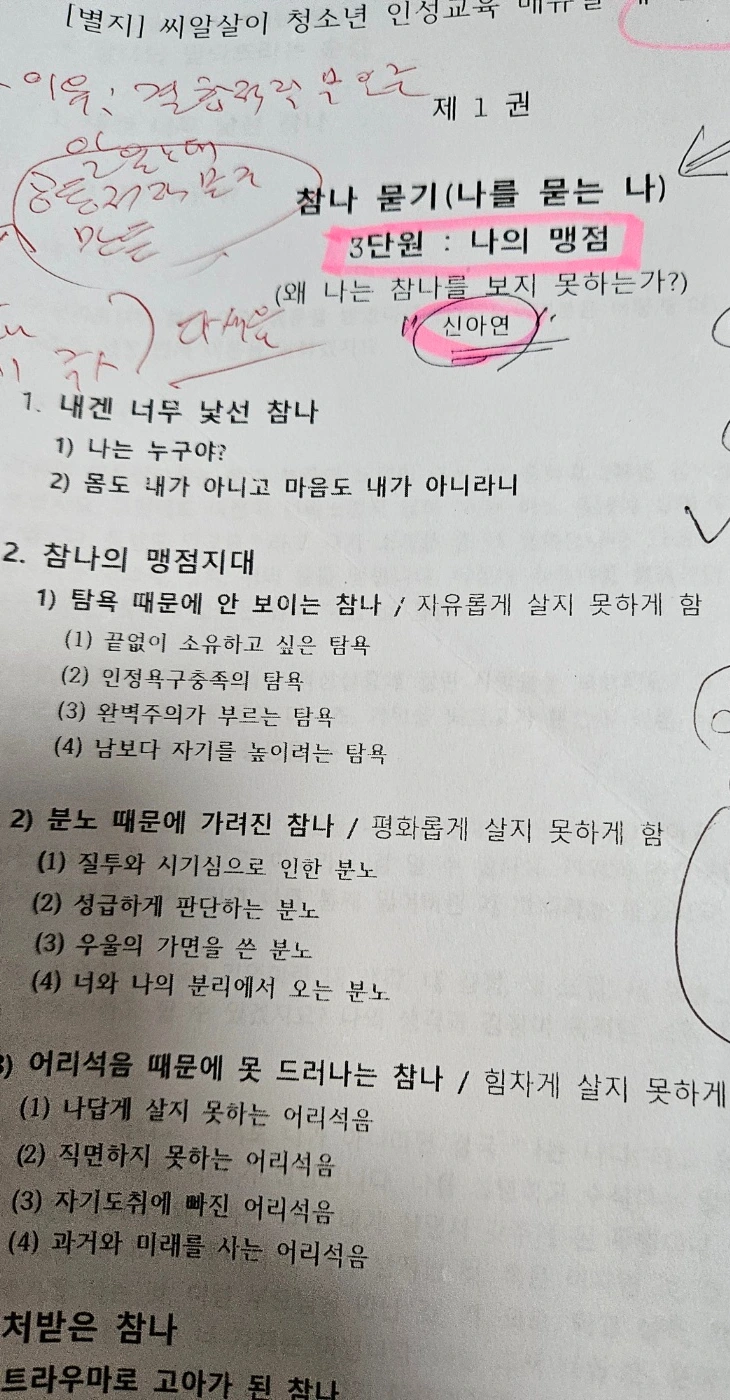 [별지] 씨알살이 청소년 인성교육 매뉴얼
이유: 결합
제 1 권
참나 묻기(나를 묻는 나)
3단원 : 나의 맹점
(왜 나는 참나를 보지 못하는가?)
신아연
1. 내겐 너무 낯선 참나
1) 나는 누구야?
2) 몸도 내가 아니고 마음도 내가 아니라니
2. 참나의 맹점지대
1) 탐욕 때문에 안 보이는 참나 / 자유롭게 살지 못하게 함
(1) 끝없이 소유하고 싶은 탐욕
(2) 인정욕구충족의 탐욕
(3) 완벽주의가 부르는 탐욕
(4) 남보다 자기를 높이려는 탐욕
2) 분노 때문에 가려진 참나 / 평화롭게 살지 못하게 함
(1) 질투와 시기심으로 인한 분노
(2) 성급하게 판단하는 분노
(3) 우울의 가면을 쓴 분노
(4) 너와 나의 분리에서 오는 분노
3) 어리석음 때문에 못 드러나는 참나 / 힘차게 살지 못하게
(1) 나답게 살지 못하는 어리석음
(2) 직면하지 못하는 어리석음
(3) 자기도취에 빠진 어리석음
(4) 과거와 미래를 사는 어리석음
처받은 참나
트라우마로 고아가 된 참나